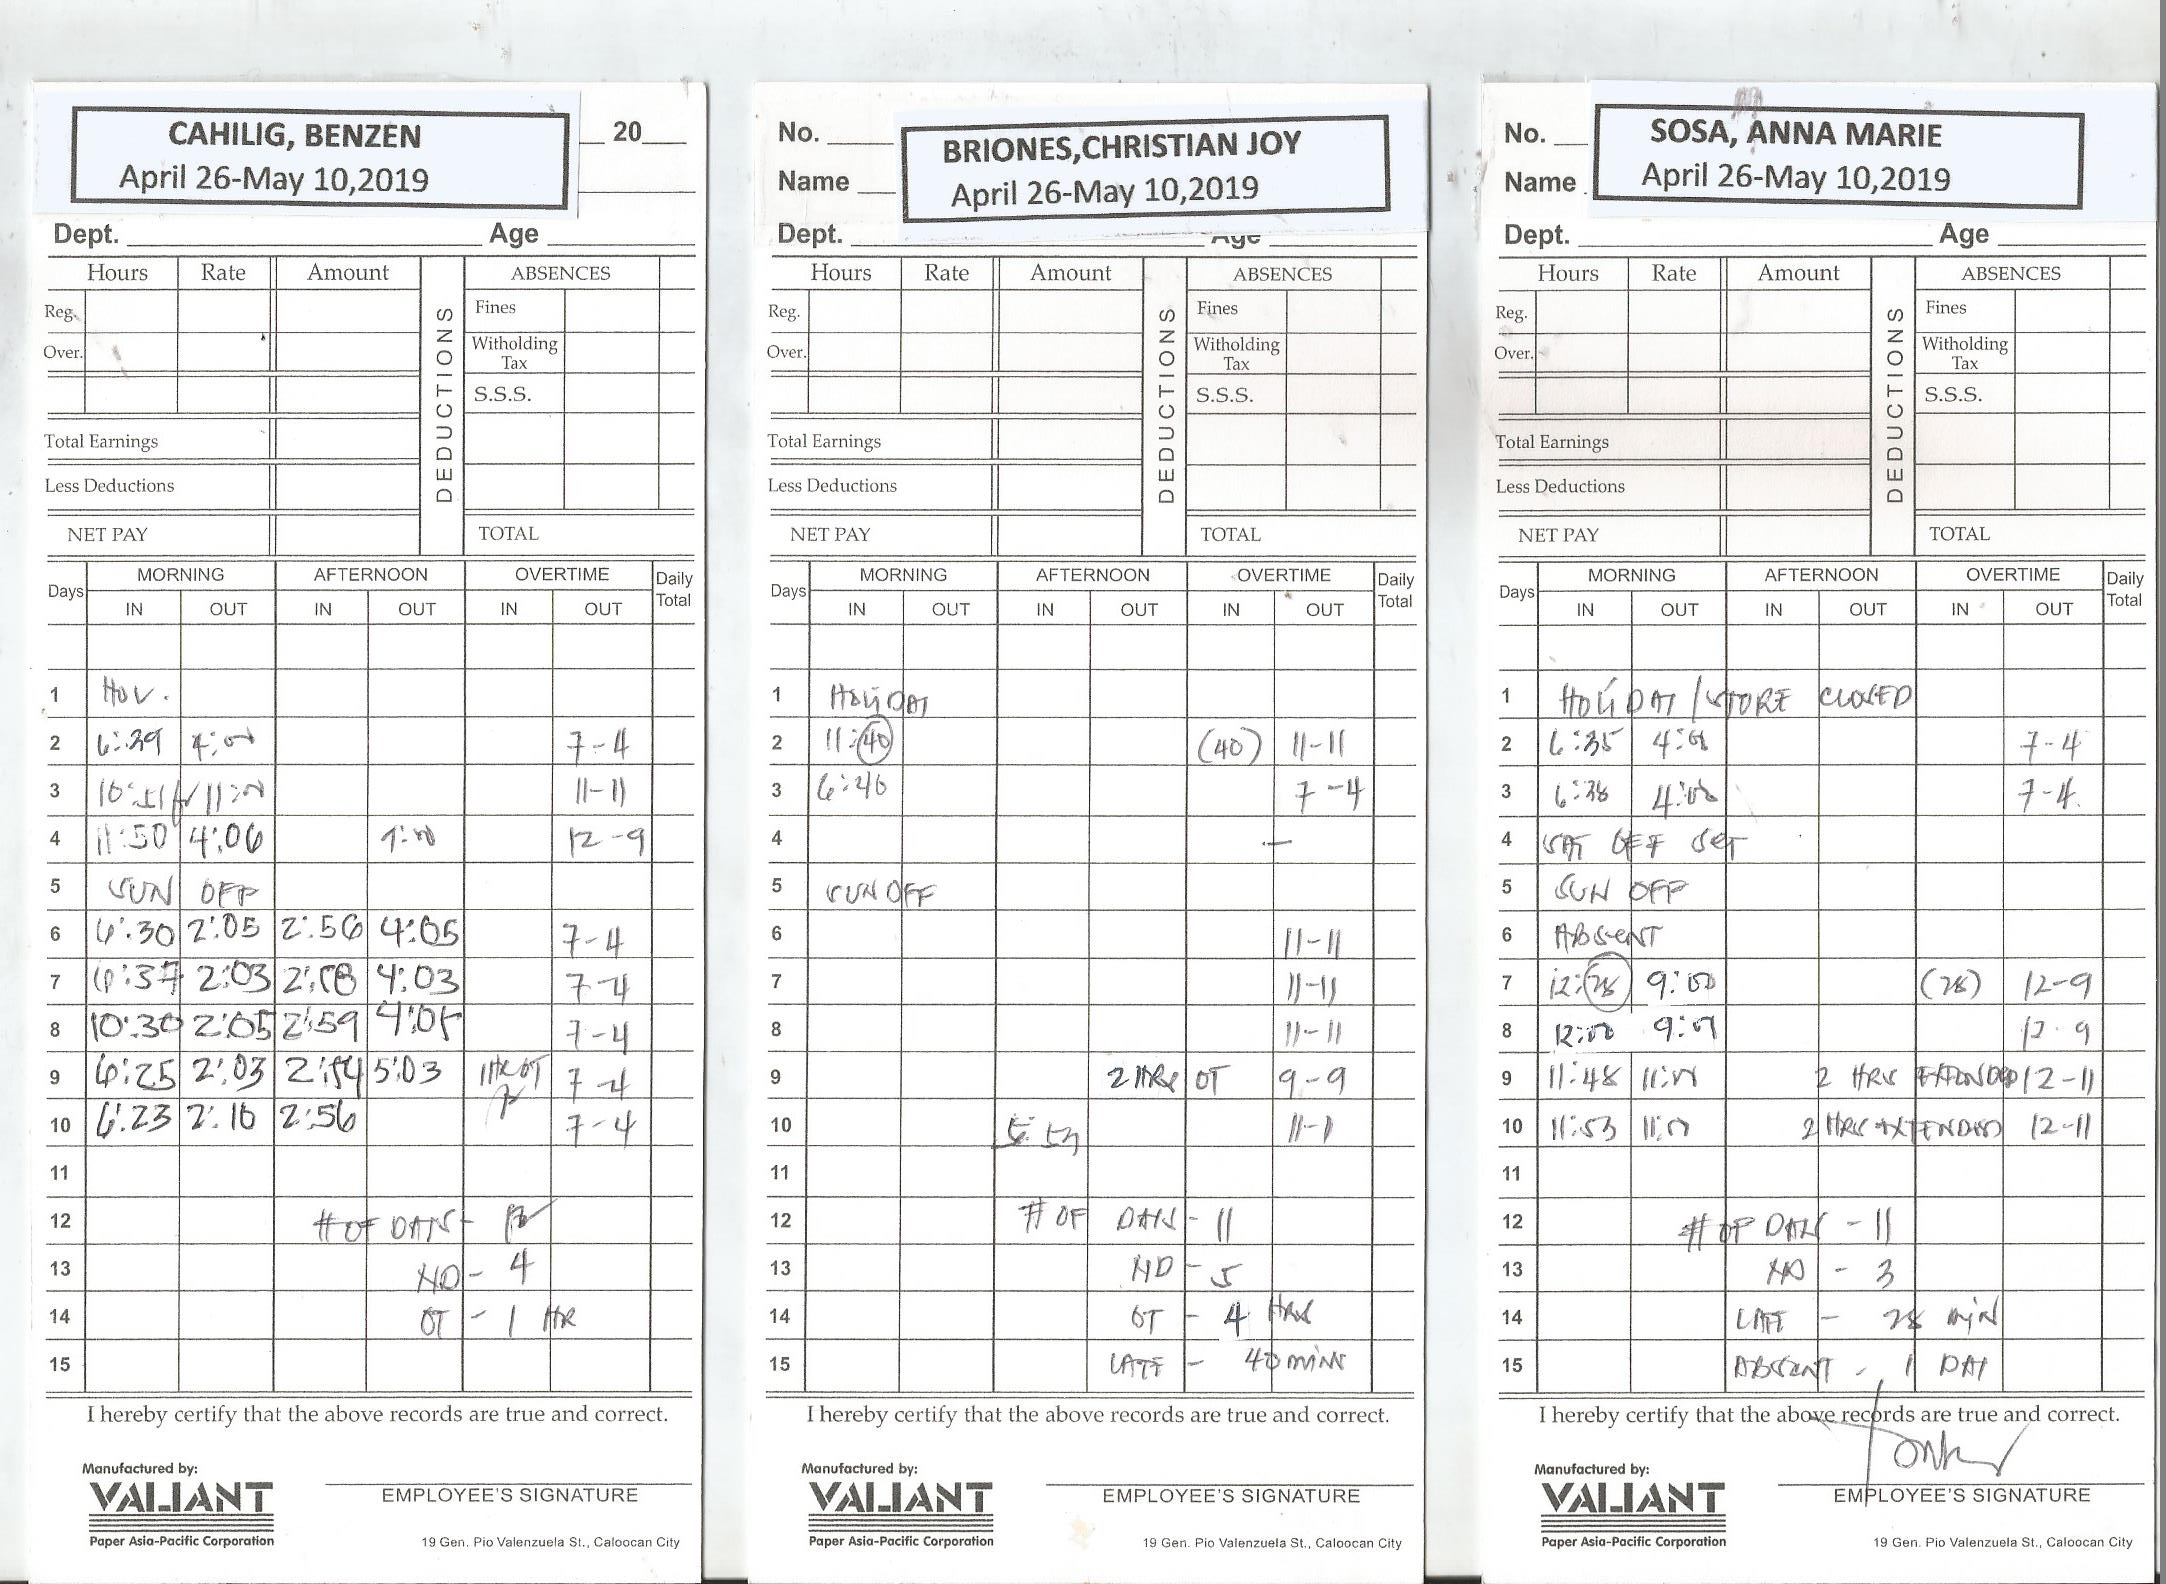 CAHILIG, BENZEN
April 26-May 10,2019
20
Dept. Age
Hours Rate Amount DEDUCTIONS ABSENCES
Reg. Fines
Over. Witholding Tax
S.S.S.
Total Earnings
Less Deductions
NET PAY TOTAL
Days MORNING AFTERNOON OVERTIME Daily Total
IN OUT IN OUT IN OUT
1 HOL.
2 6:39 4:00 7-4
3 11:00 11-11
4 11:50 4:06 12-9
5 SUN OFF
6 6:30 2:05 2:56 4:05 7-4
7 6:37 2:03 4:03 7-4
8 10:30 2:05 2:59 4:05 7-4
9 6:25 2:03 2:54 5:03 1HR OT 7-4
10 6:23 2:10 2:56 7-4
11
12 # OF DAYS -
13 ND - 4
14 OT - 1 HR
15
I hereby certify that the above records are true and correct.
Manufactured by:
VALIANT
EMPLOYEE'S SIGNATURE
Paper Asia-Pacific Corporation
19 Gen. Pio Valenzuela St., Caloocan City
No.
BRIONES,CHRISTIAN JOY
Name
April 26-May 10,2019
Dept. Age
Hours Rate Amount DEDUCTIONS ABSENCES
Reg. Fines
Over. Witholding Tax
S.S.S.
Total Earnings
Less Deductions
NET PAY TOTAL
Days MORNING AFTERNOON OVERTIME Daily Total
IN OUT IN OUT IN OUT
1 HOLIDAY
2 11:40 (40) 11-11
3 6:40 7-4
4 -
5 SUN OFF
6 11-11
7 11-11
8 11-11
9 2 HRS OT 9-9
10
11
12 # OF DAYS - 11
13 ND - 5
14 OT - 4 HRS
15 LATE - 40 MINS
I hereby certify that the above records are true and correct.
Manufactured by:
VALIANT
EMPLOYEE'S SIGNATURE
Paper Asia-Pacific Corporation
19 Gen. Pio Valenzuela St., Caloocan City
No.
SOSA, ANNA MARIE
Name
April 26-May 10,2019
Dept. Age
Hours Rate Amount DEDUCTIONS ABSENCES
Reg. Fines
Over. Witholding Tax
S.S.S.
Total Earnings
Less Deductions
NET PAY TOTAL
Days MORNING AFTERNOON OVERTIME Daily Total
IN OUT IN OUT IN OUT
1 HOLIDAY / STORE CLOSED
2 6:35 7-4
3 6:38 4:00 7-4.
4 SAT OFF SET
5 SUN OFF
6 ABSENT
7 12:28 9:00 (28) 12-9
8 12:00 12-9
9 11:48 11:00 2 HRS EXTENDED 12-11
10 11:53 11:00 2 HRS EXTENDED 12-11
11
12 # OF DAYS - 11
13 ND - 3
14 LATE - 28 MIN
15 ABSENT - 1 DAY
I hereby certify that the above records are true and correct.
Manufactured by:
VALIANT
EMPLOYEE'S SIGNATURE
Paper Asia-Pacific Corporation
19 Gen. Pio Valenzuela St., Caloocan City